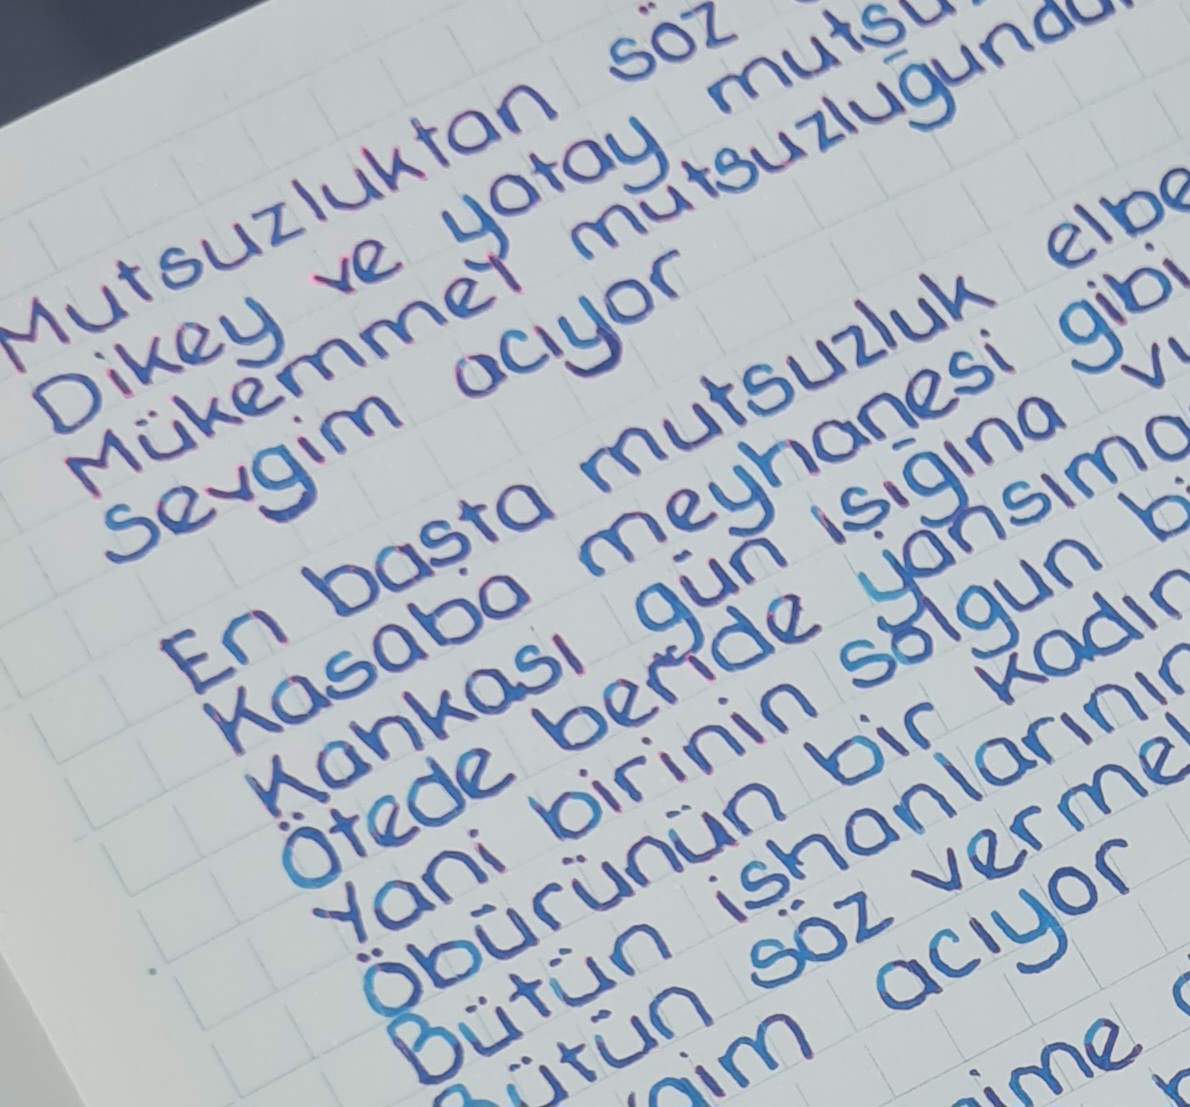 Mutsuzluktan söz
Dikey ve yatay
Mükemmel mutsuzluğundan
Sevgim acıyor
En başta mutsuzluk
Kasaba meyhanesi gibi
Kahkası gün ışığına
Ötede beride
Yani birinin solgun
Öbürünün bir
Bütün işhanlarının
Bütün söz
acıyor